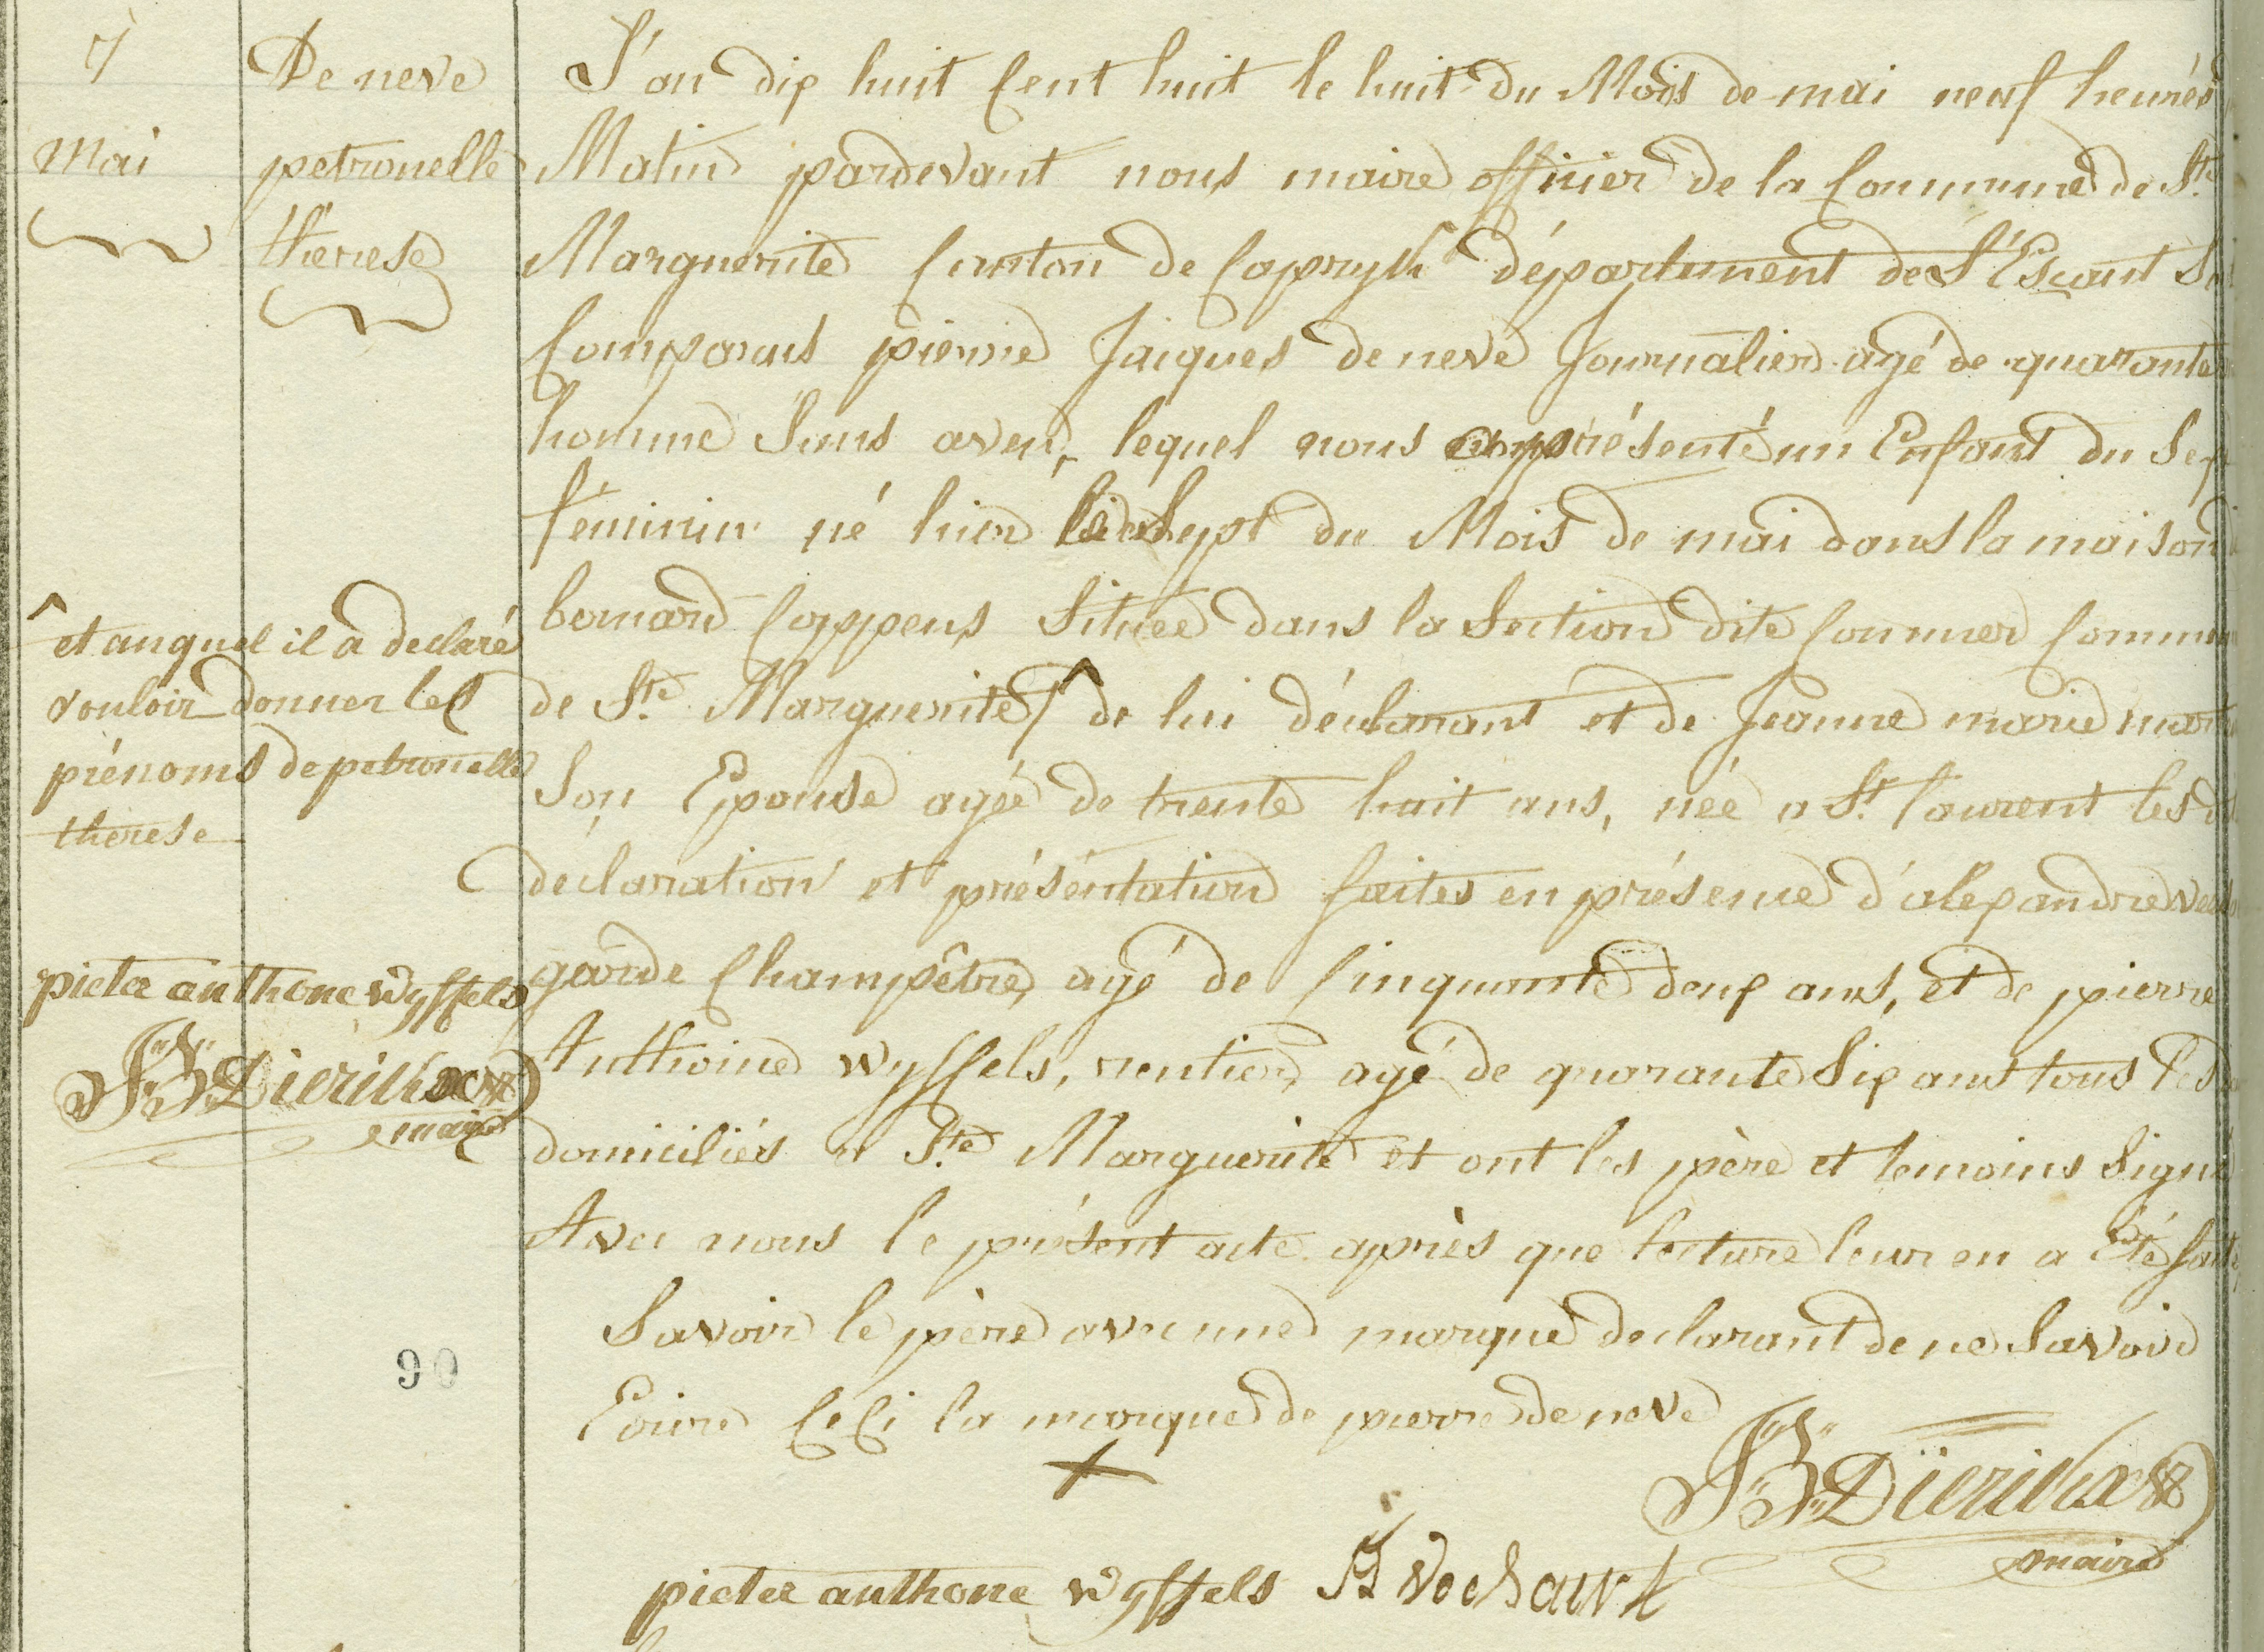 7
mai
De neve
petronelle
therese
L'an dix huit Cent huit le huit du Mois de mai neuf heures
Matin pardevant nous maire officier de la Commune de Ste
Marguerite Canton de Capryk département de L'Escaut
Comparus pierre Jaiques de neve Journalier agé de quarante
homme Sans aveu, lequel nous présenté un Enfant du Sex
féminin né hier le Sept du Mois de mai dans la maison
bernard Coppens Située dans la Section dite Commer Commun
de Ste Marguerite / ^ de lui déclarant et de Jeanne marie
Son Epouse agée de trente huit ans, née a St. laurent les
déclaration et présentation faites en présence d'alexandre
garde Champêtre, agé de Cinquante deux ans, et de pierre
Anthoine wyffels, rentier, agé de quarante Six ans tous les
domiciliés a Ste Marguerite et ont les père et temoins Signé
Avec nous le présent acte après que lecture leur en a Eté faite
Savoir le père avec une marque declarant de ne Savoir
Ecrire CeCi la marque de pierre de neve
+
pieter anthone wyffels
JB Dierickx
maire
^ et auquel il a declaré
vouloir donner les
prénoms de petronelle
therese
pieter anthone wyffels
JB Dierickx
maire
90